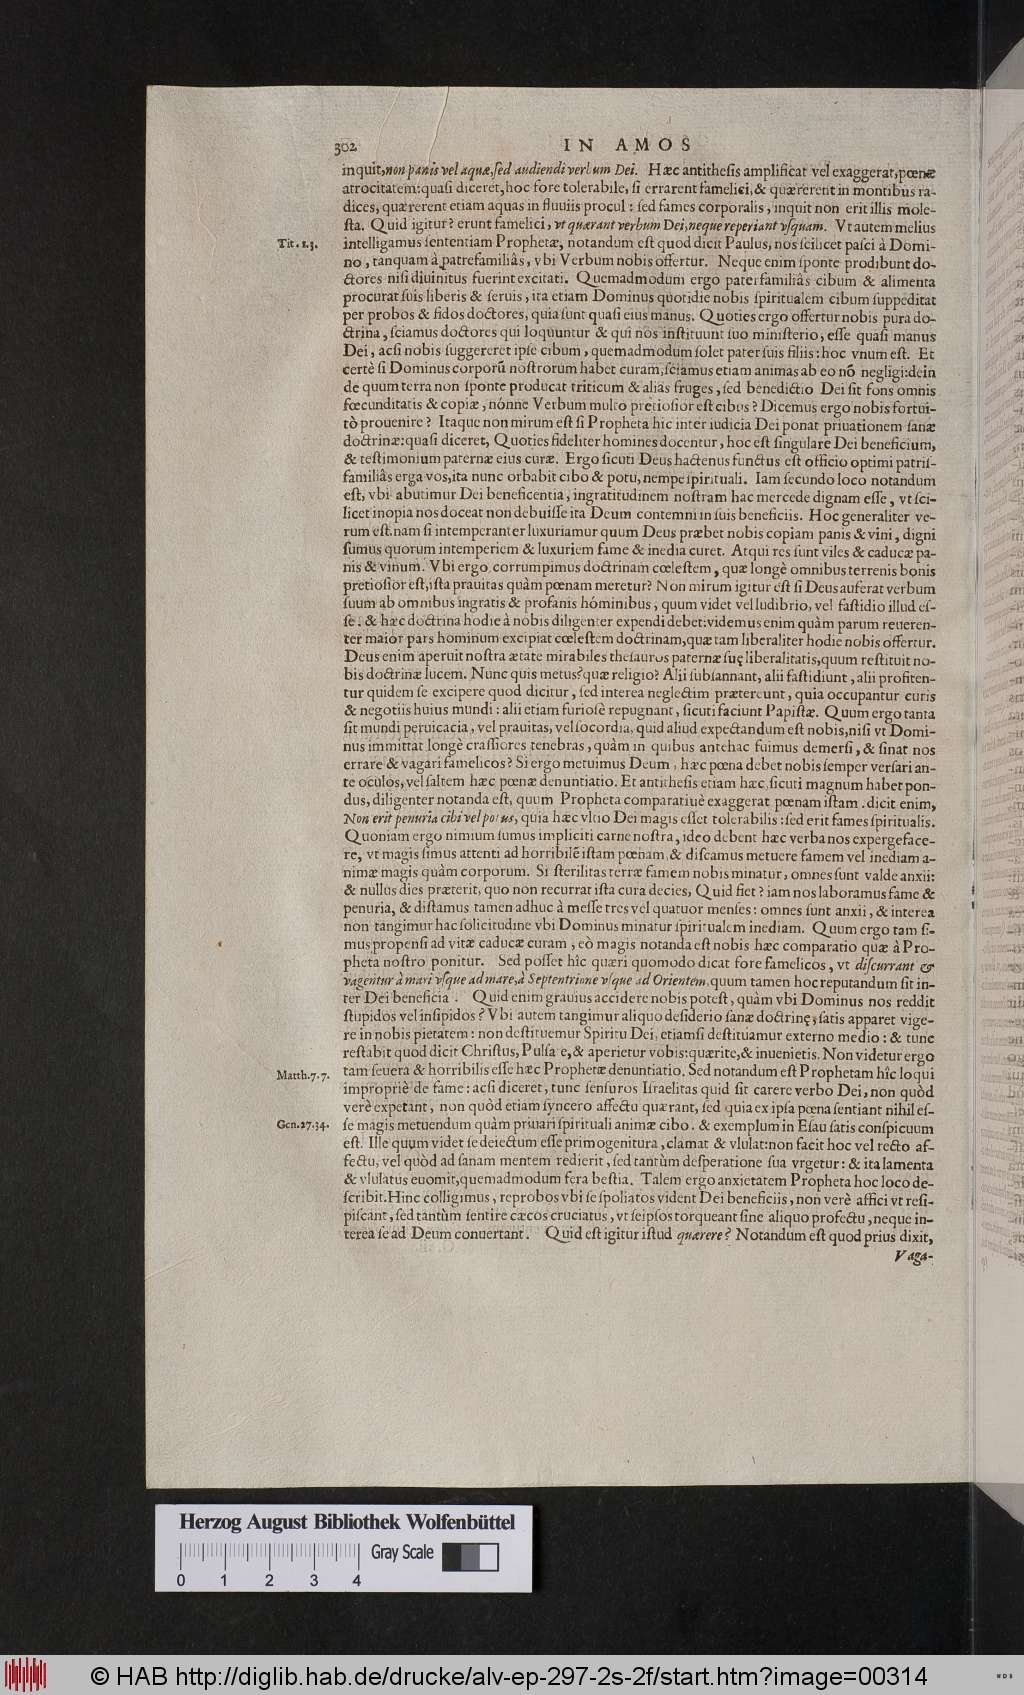 302 IN AMOS
inquit, non panis vel aquæ, ſed audiendi verbum Dei. Hæc antitheſis amplificat vel exaggerat, pœnæ
atrocitatem: quaſi diceret, hoc fore tolerabile, ſi errarent famelici, & quærerent in montibus ra-
dices, quærerent etiam aquas in fluuiis procul: ſed fames corporalis, inquit non erit illis mole-
ſta. Quid igitur? erunt famelici, vt quærant verbum Dei, neque reperiant vſquam. Vt autem melius
Tit. 1.3. intelligamus ſententiam Prophetæ, notandum eſt quod dicit Paulus, nos ſcilicet paſci à Domi-
no, tanquam à patrefamiliâs, vbi Verbum nobis offertur. Neque enim ſponte prodibunt do-
ctores niſi diuinitus fuerint excitati. Quemadmodum ergo paterfamiliâs cibum & alimenta
procurat ſuis liberis & ſeruis, ita etiam Dominus quotidie nobis ſpiritualem cibum ſuppeditat
per probos & fidos doctores, quia ſunt quaſi eius manus. Quoties ergo offertur nobis pura do-
ctrina, ſciamus doctores qui loquuntur & qui nos inſtituunt ſuo miniſterio, eſſe quaſi manus
Dei, acſi nobis ſuggereret ipſe cibum, quemadmodum ſolet pater ſuis filiis: hoc vnum eſt. Et
certè ſi Dominus corporū noſtrorum habet curam, ſciamus etiam animas ab eo nō negligi: dein
de quum terra non ſponte producat triticum & alias fruges, ſed benedictio Dei ſit fons omnis
fœcunditatis & copiæ, nónne Verbum multo pretioſior eſt cibus? Dicemus ergo nobis fortui-
tò prouenire? Itaque non mirum eſt ſi Propheta hîc inter iudicia Dei ponat priuationem ſanæ
doctrinæ: quaſi diceret, Quoties fideliter homines docentur, hoc eſt ſingulare Dei beneficium,
& teſtimonium paternæ eius curæ. Ergo ſicuti Deus hactenus functus eſt officio optimi patriſ-
familiâs erga vos, ita nunc orbabit cibo & potu, nempe ſpirituali. Iam ſecundo loco notandum
eſt, vbi abutimur Dei beneficentia, ingratitudinem noſtram hac mercede dignam eſſe, vt ſci-
licet inopia nos doceat non debuiſſe ita Deum contemni in ſuis beneficiis. Hoc generaliter ve-
rum eſt. nam ſi intemperanter luxuriamur quum Deus præbet nobis copiam panis & vini, digni
ſumus quorum intemperiem & luxuriem fame & inedia curet. Atqui res ſunt viles & caducæ pa-
nis & vinum. Vbi ergo corrumpimus doctrinam cœleſtem, quæ longè omnibus terrenis bonis
pretioſior eſt, iſta prauitas quàm pœnam meretur? Non mirum igitur eſt ſi Deus auferat verbum
ſuum ab omnibus ingratis & profanis hóminibus, quum videt vel ludibrio, vel faſtidio illud eſ-
ſe. & hæc doctrina hodie à nobis diligenter expendi debet: videmus enim quàm parum reueren-
ter maior pars hominum excipiat cœleſtem doctrinam, quæ tam liberaliter hodie nobis offertur.
Deus enim aperuit noſtra ætate mirabiles theſauros paternæ ſuę liberalitatis, quum reſtituit no-
bis doctrinæ lucem. Nunc quis metus? quæ religio? Alii ſubſannant, alii faſtidiunt, alii profiten-
tur quidem ſe excipere quod dicitur, ſed interea neglectim prætereunt, quia occupantur curis
& negotiis huius mundi: alii etiam furioſè repugnant, ſicuti faciunt Papiſtæ. Quum ergo tanta
ſit mundi peruicacia, vel prauitas, vel ſocordia, quid aliud expectandum eſt nobis, niſi vt Domi-
nus immittat longè craſſiores tenebras, quàm in quibus antehac fuimus demerſi, & ſinat nos
errare & vagari famelicos? Si ergo metuimus Deum, hæc pœna debet nobis ſemper verſari an-
te oculos, vel ſaltem hæc pœnæ denuntiatio. Et antitheſis etiam hæc, ſicuti magnum habet pon-
dus, diligenter notanda eſt, quum Propheta comparatiuè exaggerat pœnam iſtam. dicit enim,
Non erit penuria cibi vel potus, quia hæc vltio Dei magis eſſet tolerabilis: ſed erit fames ſpiritualis.
Quoniam ergo nimium ſumus impliciti carne noſtra, ideo debent hæc verba nos expergeface-
re, vt magis ſimus attenti ad horribilē iſtam pœnam, & diſcamus metuere famem vel inediam a-
nimæ magis quàm corporum. Si ſterilitas terræ famem nobis minatur, omnes ſunt valde anxii:
& nullus dies præterit, quo non recurrat iſta cura decies, Quid fiet? iam nos laboramus fame &
penuria, & diſtamus tamen adhuc à meſſe tres vel quatuor menſes: omnes ſunt anxii, & interea
non tangimur hac ſolicitudine vbi Dominus minatur ſpiritualem inediam. Quum ergo tam ſi-
mus propenſi ad vitæ caducæ curam, eò magis notanda eſt nobis hæc comparatio quæ à Pro-
pheta noſtro ponitur. Sed poſſet hîc quæri quomodo dicat fore famelicos, vt diſcurrant &
vagentur à mari vſque ad mare, à Septentrione vſque ad Orientem, quum tamen hoc reputandum ſit in-
ter Dei beneficia. Quid enim grauius accidere nobis poteſt, quàm vbi Dominus nos reddit
ſtupidos vel inſipidos? Vbi autem tangimur aliquo deſiderio ſanæ doctrinę, ſatis apparet vige-
re in nobis pietatem: non deſtituemur Spiritu Dei, etiamſi deſtituamur externo medio: & tunc
reſtabit quod dicit Chriſtus, Pulſate, & aperietur vobis: quærite, & inuenietis. Non videtur ergo
Matth. 7.7. tam ſeuera & horribilis eſſe hæc Prophetæ denuntiatio. Sed notandum eſt Prophetam hîc loqui
impropriè de fame: acſi diceret, tunc ſenſuros Iſraelitas quid ſit carere verbo Dei, non quòd
verè expetant, non quòd etiam ſyncero affectu quærant, ſed quia ex ipſa pœna ſentiant nihil eſ-
Gen. 27.34. ſe magis metuendum quàm priuari ſpirituali animæ cibo. & exemplum in Eſau ſatis conſpicuum
eſt. Ille quum videt ſe deiectum eſſe primogenitura, clamat & vlulat: non facit hoc vel recto af-
fectu, vel quòd ad ſanam mentem redierit, ſed tantùm deſperatione ſua vrgetur: & ita lamenta
& vlulatus euomit, quemadmodum fera beſtia. Talem ergo anxietatem Propheta hoc loco de-
ſcribit. Hinc colligimus, reprobos vbi ſe ſpoliatos vident Dei beneficiis, non verè affici vt reſi-
piſcant, ſed tantùm ſentire cæcos cruciatus, vt ſeipſos torqueant ſine aliquo profectu, neque in-
terea ſe ad Deum conuertant. Quid eſt igitur iſtud quærere? Notandum eſt quod prius dixit,
Vaga-
Herzog August Bibliothek Wolfenbüttel
Gray Scale
0 1 2 3 4
© HAB http://diglib.hab.de/drucke/alv-ep-297-2s-2f/start.htm?image=00314